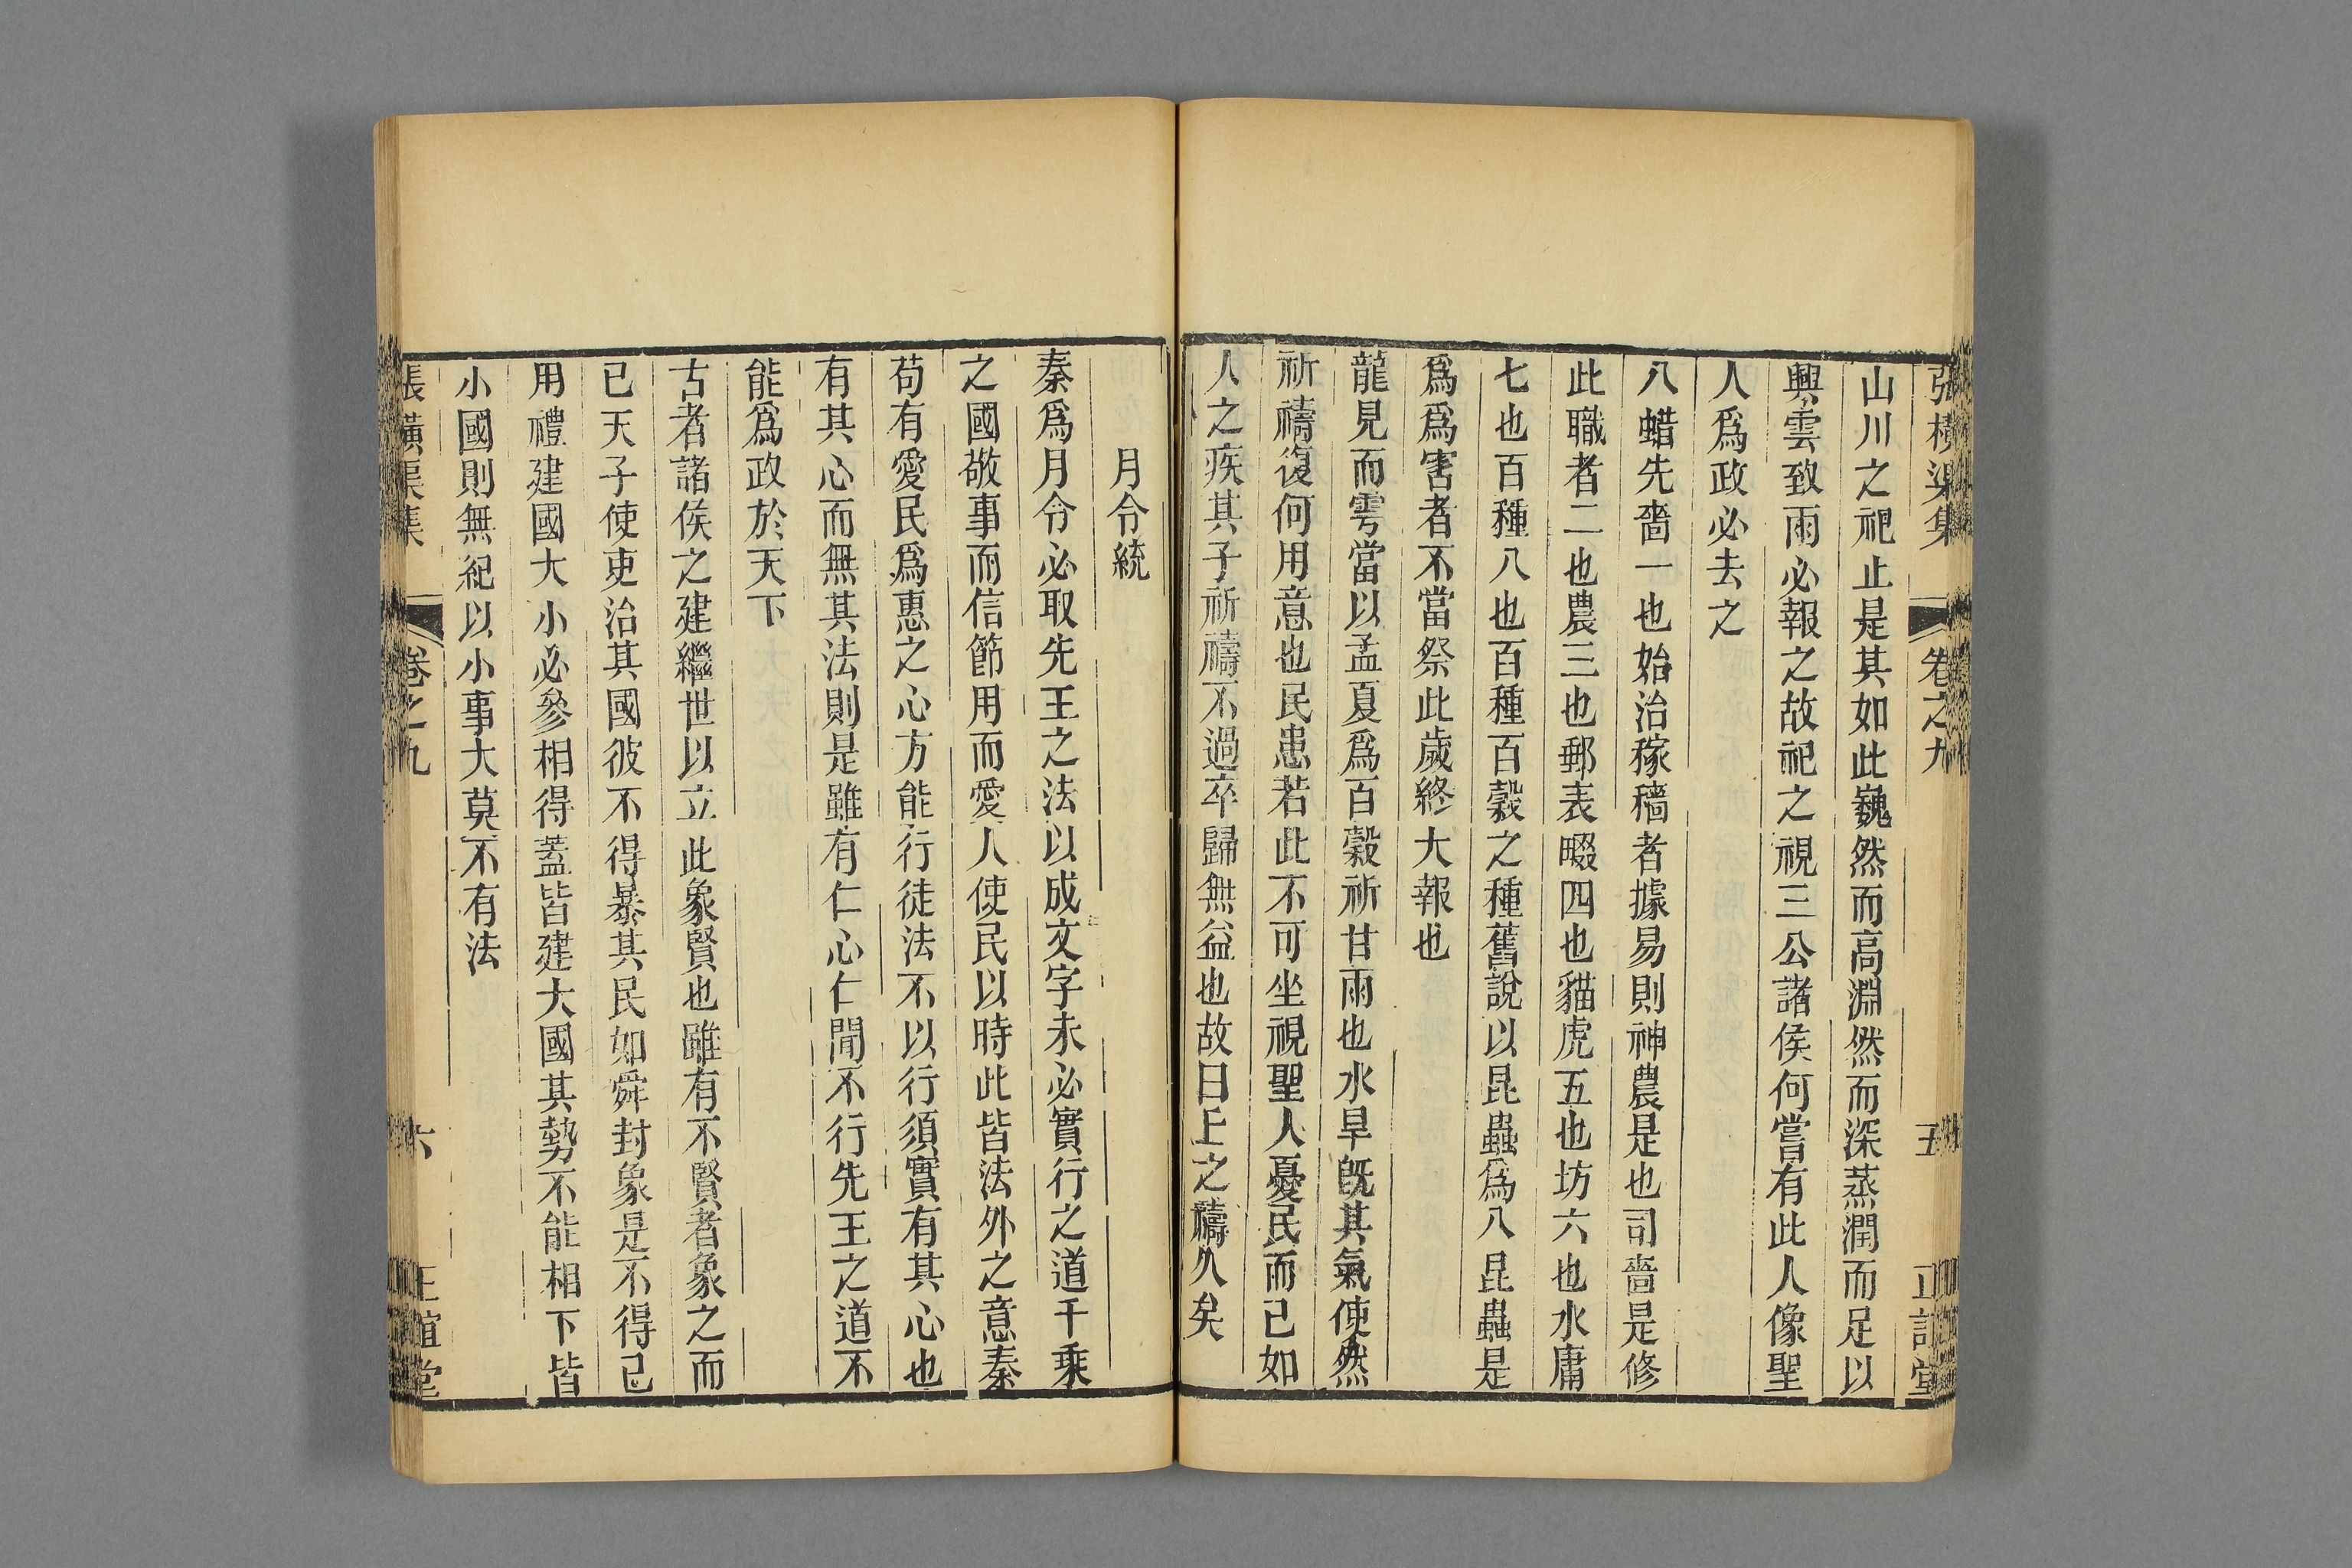 張橫渠集 卷之九 五 正誼堂
山川之祀止是其如此巍然而高淵然而深蒸潤而足以
興雲致雨必報之故祀之視三公諸侯何嘗有此人像聖
人爲政必去之
八蜡先嗇一也始治稼穡者據易則神農是也司嗇是修
此職者二也農三也郵表畷四也貓虎五也坊六也水庸
七也百種八也百種百穀之種舊說以昆蟲爲八昆蟲是
爲爲害者不當祭此歲終大報也
龍見而雩當以孟夏爲百穀祈甘雨也水旱旣其氣使然
祈禱復何用意也民患若此不可坐視聖人憂民而已如
人之疾其子祈禱不過卒歸無益也故曰上之禱久矣
月令統
秦爲月令必取先王之法以成文字未必實行之道千乘
之國敬事而信節用而愛人使民以時此皆法外之意秦
苟有愛民爲惠之心方能行徒法不以行須實有其心也
有其心而無其法則是雖有仁心仁聞不行先王之道不
能爲政於天下
古者諸侯之建繼世以立此象賢也雖有不賢者象之而
已天子使吏治其國彼不得暴其民如舜封象是不得已
用禮建國大小必參相得蓋皆建大國其勢不能相下皆
小國則無紀以小事大莫不有法
張橫渠集 卷之九 六 正誼堂